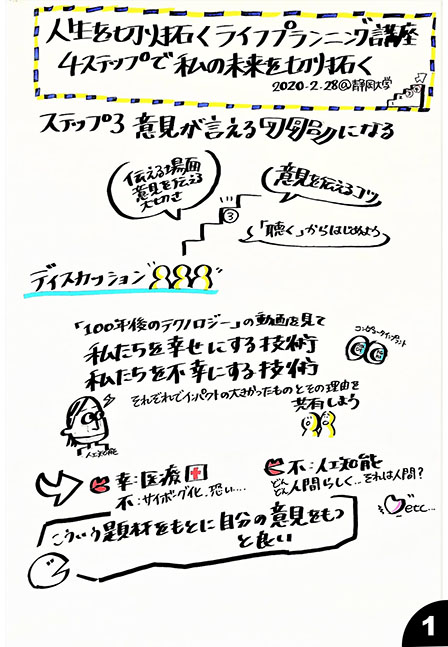 人生を切り拓くライフプランニング講座
4ステップで私の未来を切り拓く
2020.2.28@静岡大学
ステップ3 意見が言える
になる
伝える場面
意見を伝える
大切さ
意見を伝えるコツ
③
「聴く」からはじめよう
ディスカッション
「100年後のテクノロジー」の動画を見て
私たちを幸せにする技術
私たちを不幸にする技術
コンピュータインプラント
それぞれでインパクトの大きかったものとその理由を
共有しよう
人工知能
幸:医療
不:サイボーグ化、恐い....
不:人工知能
どんどん人間らしく...それは人間?
etc...
こういう題材をもとに自分の意見をもつ
と良い
1